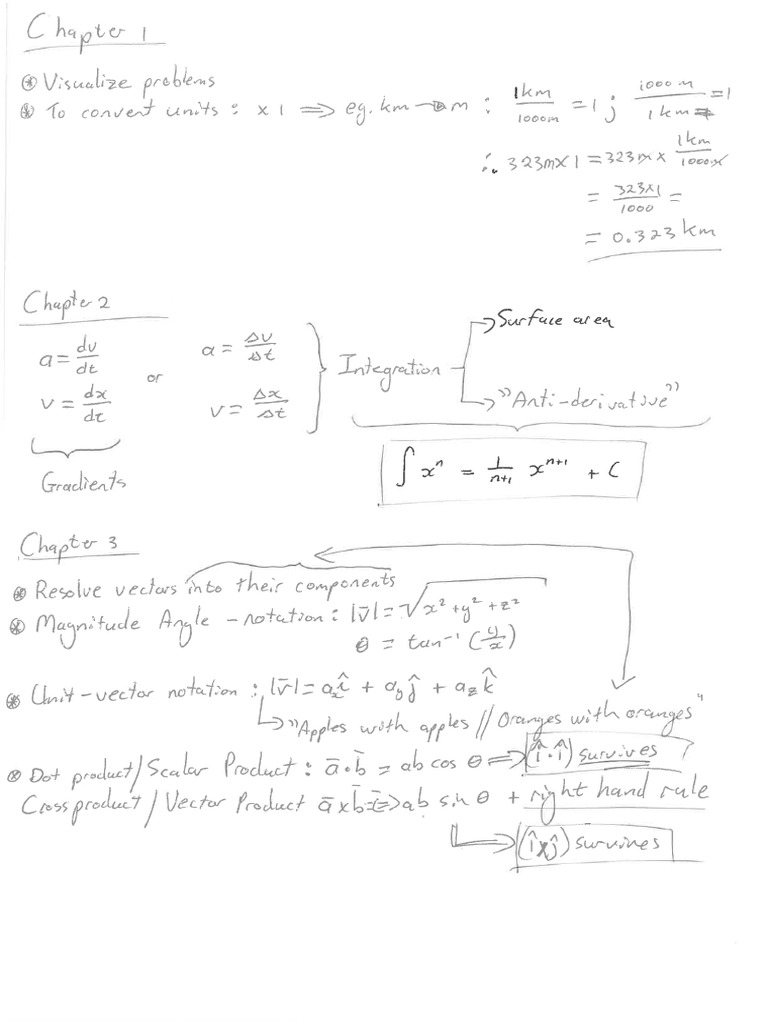 Chapter 1
⊛ Visualize problems
⊛ To convert units : x 1 ⟹ eg. km → m : 1km/1000m = 1 ; 1000m/1km = 1
∴ 323m x 1 = 323m x 1km/1000m
= 323x1/1000 =
= 0.323 km
Chapter 2
a = dv/dt or a = Δv/Δt } Integration → Surface area
v = dx/dt v = Δx/Δt → "Anti-derivative"
Gradients
∫ x^n = 1/(n+1) x^(n+1) + C
Chapter 3
⊛ Resolve vectors into their components
⊛ Magnitude Angle - notation : |v̄| = √(x² + y² + z²)
θ = tan⁻¹ (y/x)
⊛ Unit-vector notation : |v̄| = aₓî + a_yĵ + a_zk̂
↳ "Apples with apples // Oranges with oranges"
⊛ Dot product / Scalar Product : ā • b̄ = ab cos θ ⟹ (î • î) survives
Cross product / Vector Product ā x b̄ ⟹ ab sin θ + right hand rule
↳ (î x ĵ) survives